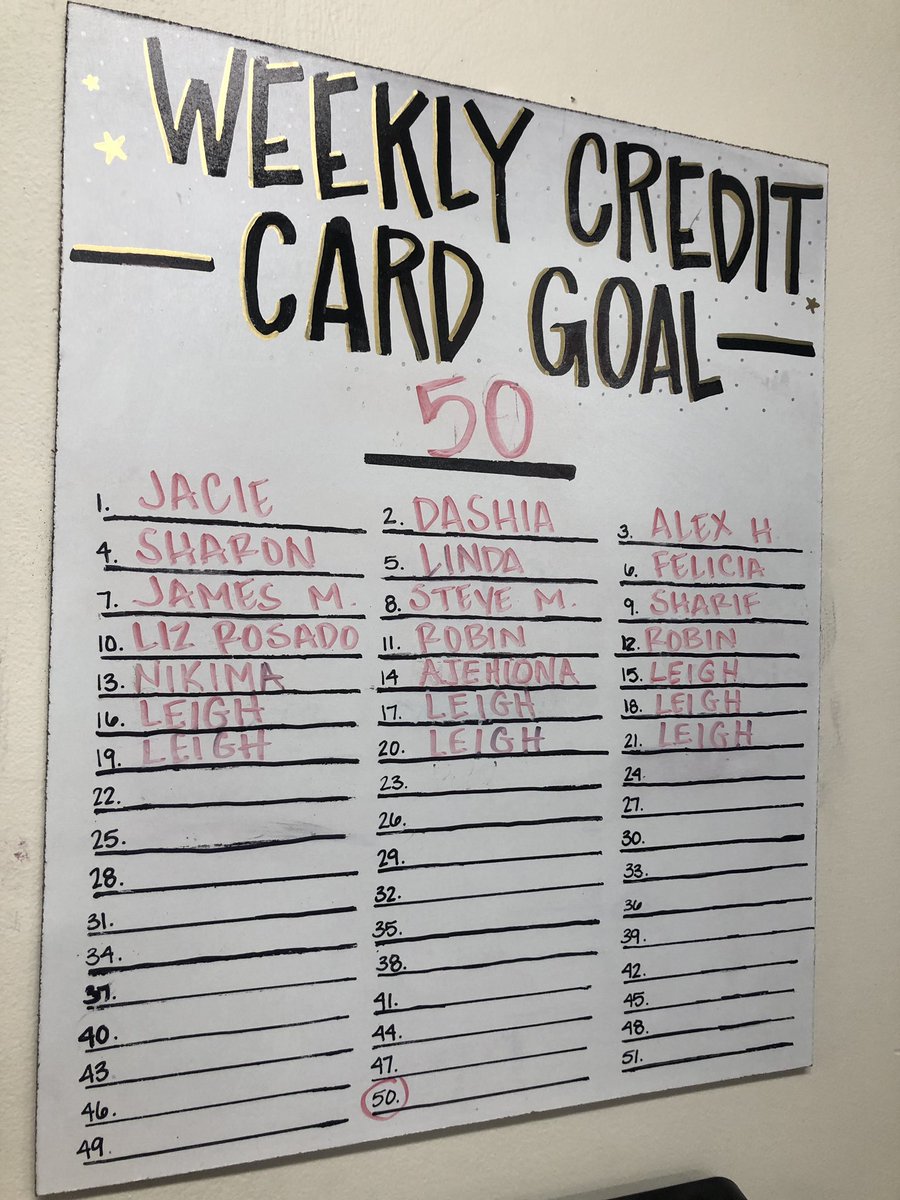 WEEKLY CREDIT
CARD GOAL
50
1. JACIE 2. DASHIA 3. ALEX H
4. SHARON 5. LINDA 6. FELICIA
7. JAMES M. 8. STEVE M. 9. SHARIF
10. LIZ ROSADO 11. ROBIN 12. ROBIN
13. NIKIMA 14 AJEHIONA 15. LEIGH
16. LEIGH 17. LEIGH 18. LEIGH
19. LEIGH 20. LEIGH 21. LEIGH
22. 23. 24.
25. 26. 27.
28. 29. 30.
31. 32. 33.
34. 35. 36
37. 38. 39.
40. 41. 42.
43. 44. 45.
46. 47. 48.
49. 50. 51.